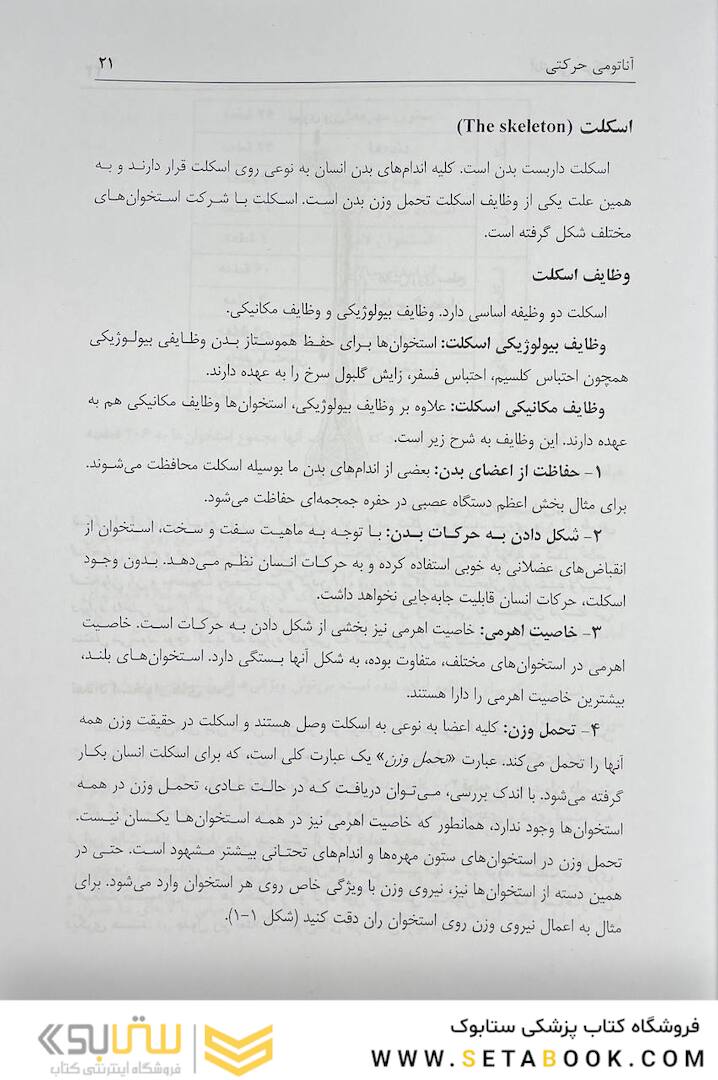 آناتومی حرکتی
۲۱
اسکلت (The skeleton)
اسکلت داربست بدن است. کلیه اندام‌های بدن انسان به نوعی روی اسکلت قرار دارند و به
همین علت یکی از وظایف اسکلت تحمل وزن بدن است. اسکلت با شرکت استخوان‌های
مختلف شکل گرفته است.
وظایف اسکلت
اسکلت دو وظیفه اساسی دارد. وظایف بیولوژیکی و وظایف مکانیکی.
وظایف بیولوژیکی اسکلت: استخوان‌ها برای حفظ هموستاز بدن وظایفی بیولوژیکی
همچون احتباس کلسیم، احتباس فسفر، زایش گلبول سرخ را به عهده دارند.
وظایف مکانیکی اسکلت: علاوه بر وظایف بیولوژیکی، استخوان‌ها وظایف مکانیکی هم به
عهده دارند. این وظایف به شرح زیر است.
۱- حفاظت از اعضای بدن: بعضی از اندام‌های بدن ما بوسیله اسکلت محافظت می‌شوند.
برای مثال بخش اعظم دستگاه عصبی در حفره جمجمه‌ای حفاظت می‌شود.
۲- شکل دادن به حرکات بدن: با توجه به ماهیت سفت و سخت، استخوان از
انقباض‌های عضلانی به خوبی استفاده کرده و به حرکات انسان نظم می‌دهد. بدون وجود
اسکلت، حرکات انسان قابلیت جابه‌جایی نخواهد داشت.
۳- خاصیت اهرمی: خاصیت اهرمی نیز بخشی از شکل دادن به حرکات است. خاصیت
اهرمی در استخوان‌های مختلف، متفاوت بوده، به شکل آنها بستگی دارد. استخوان‌های بلند،
بیشترین خاصیت اهرمی را دارا هستند.
۴- تحمل وزن: کلیه اعضا به نوعی به اسکلت وصل هستند و اسکلت در حقیقت وزن همه
آنها را تحمل می‌کند. عبارت «تحمل وزن» یک عبارت کلی است، که برای اسکلت انسان بکار
گرفته می‌شود. با اندک بررسی، می‌توان دریافت که در حالت عادی، تحمل وزن در همه
استخوان‌ها وجود ندارد، همانطور که خاصیت اهرمی نیز در همه استخوان‌ها یکسان نیست.
تحمل وزن در استخوان‌های ستون مهره‌ها و اندام‌های تحتانی بیشتر مشهود است. حتی در
همین دسته از استخوان‌ها نیز، نیروی وزن با ویژگی خاص روی هر استخوان وارد می‌شود. برای
مثال به اعمال نیروی وزن روی استخوان ران دقت کنید (شکل ۱-۱).
فروشگاه کتاب پزشکی ستابوک
WWW.SETABOOK.COM
ستابوک
فروشگاه اینترنتی کتاب